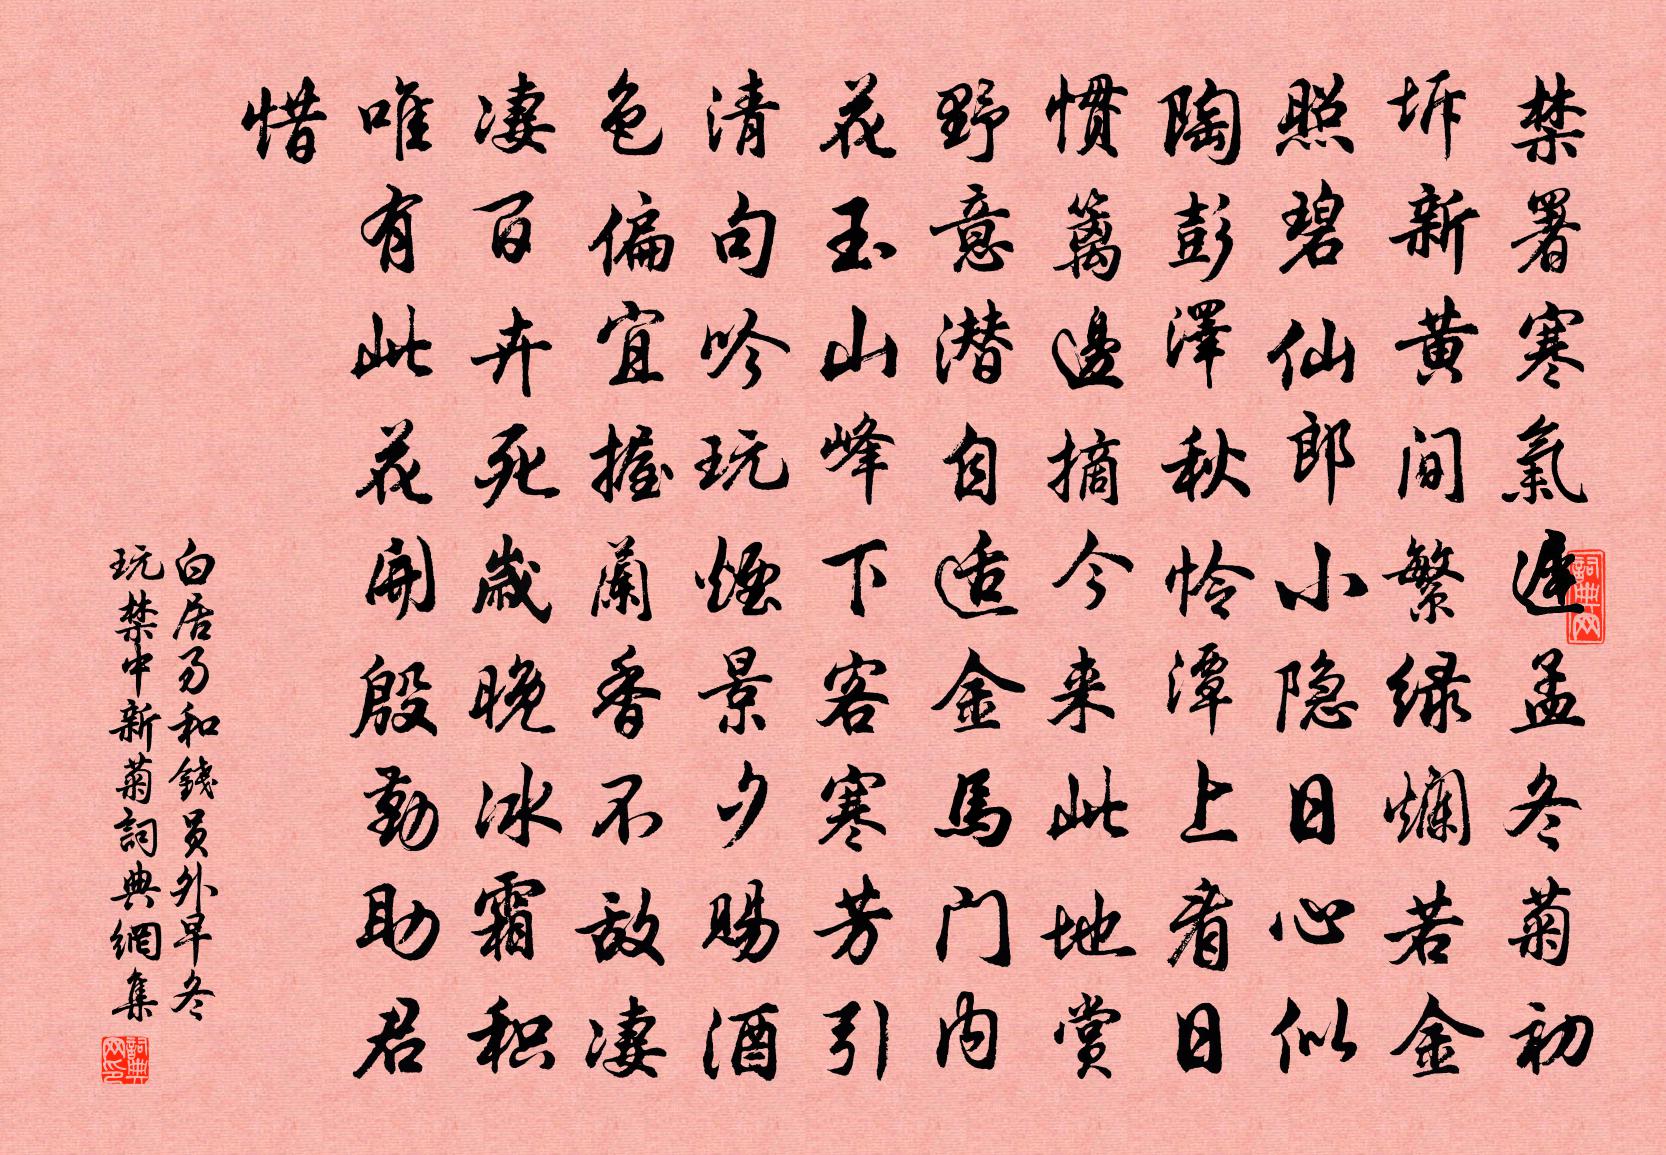 禁署寒氣遲孟冬菊初
坼新黄间繁绿爛若金
照碧仙郎小隐日心似
陶彭澤秋怜潭上看日
惯籬邊摘今来此地赏
野意潜自适金馬门内
花玉山峰下客寒芳引
清句吟玩煙景夕赐酒
色偏宜握蘭香不敌凄
凄百卉死歲晚冰霜积
唯有此花開殷勤助君
惜
白居易和錢员外早冬
玩禁中新菊詞典網集
詞典网
詞典网印